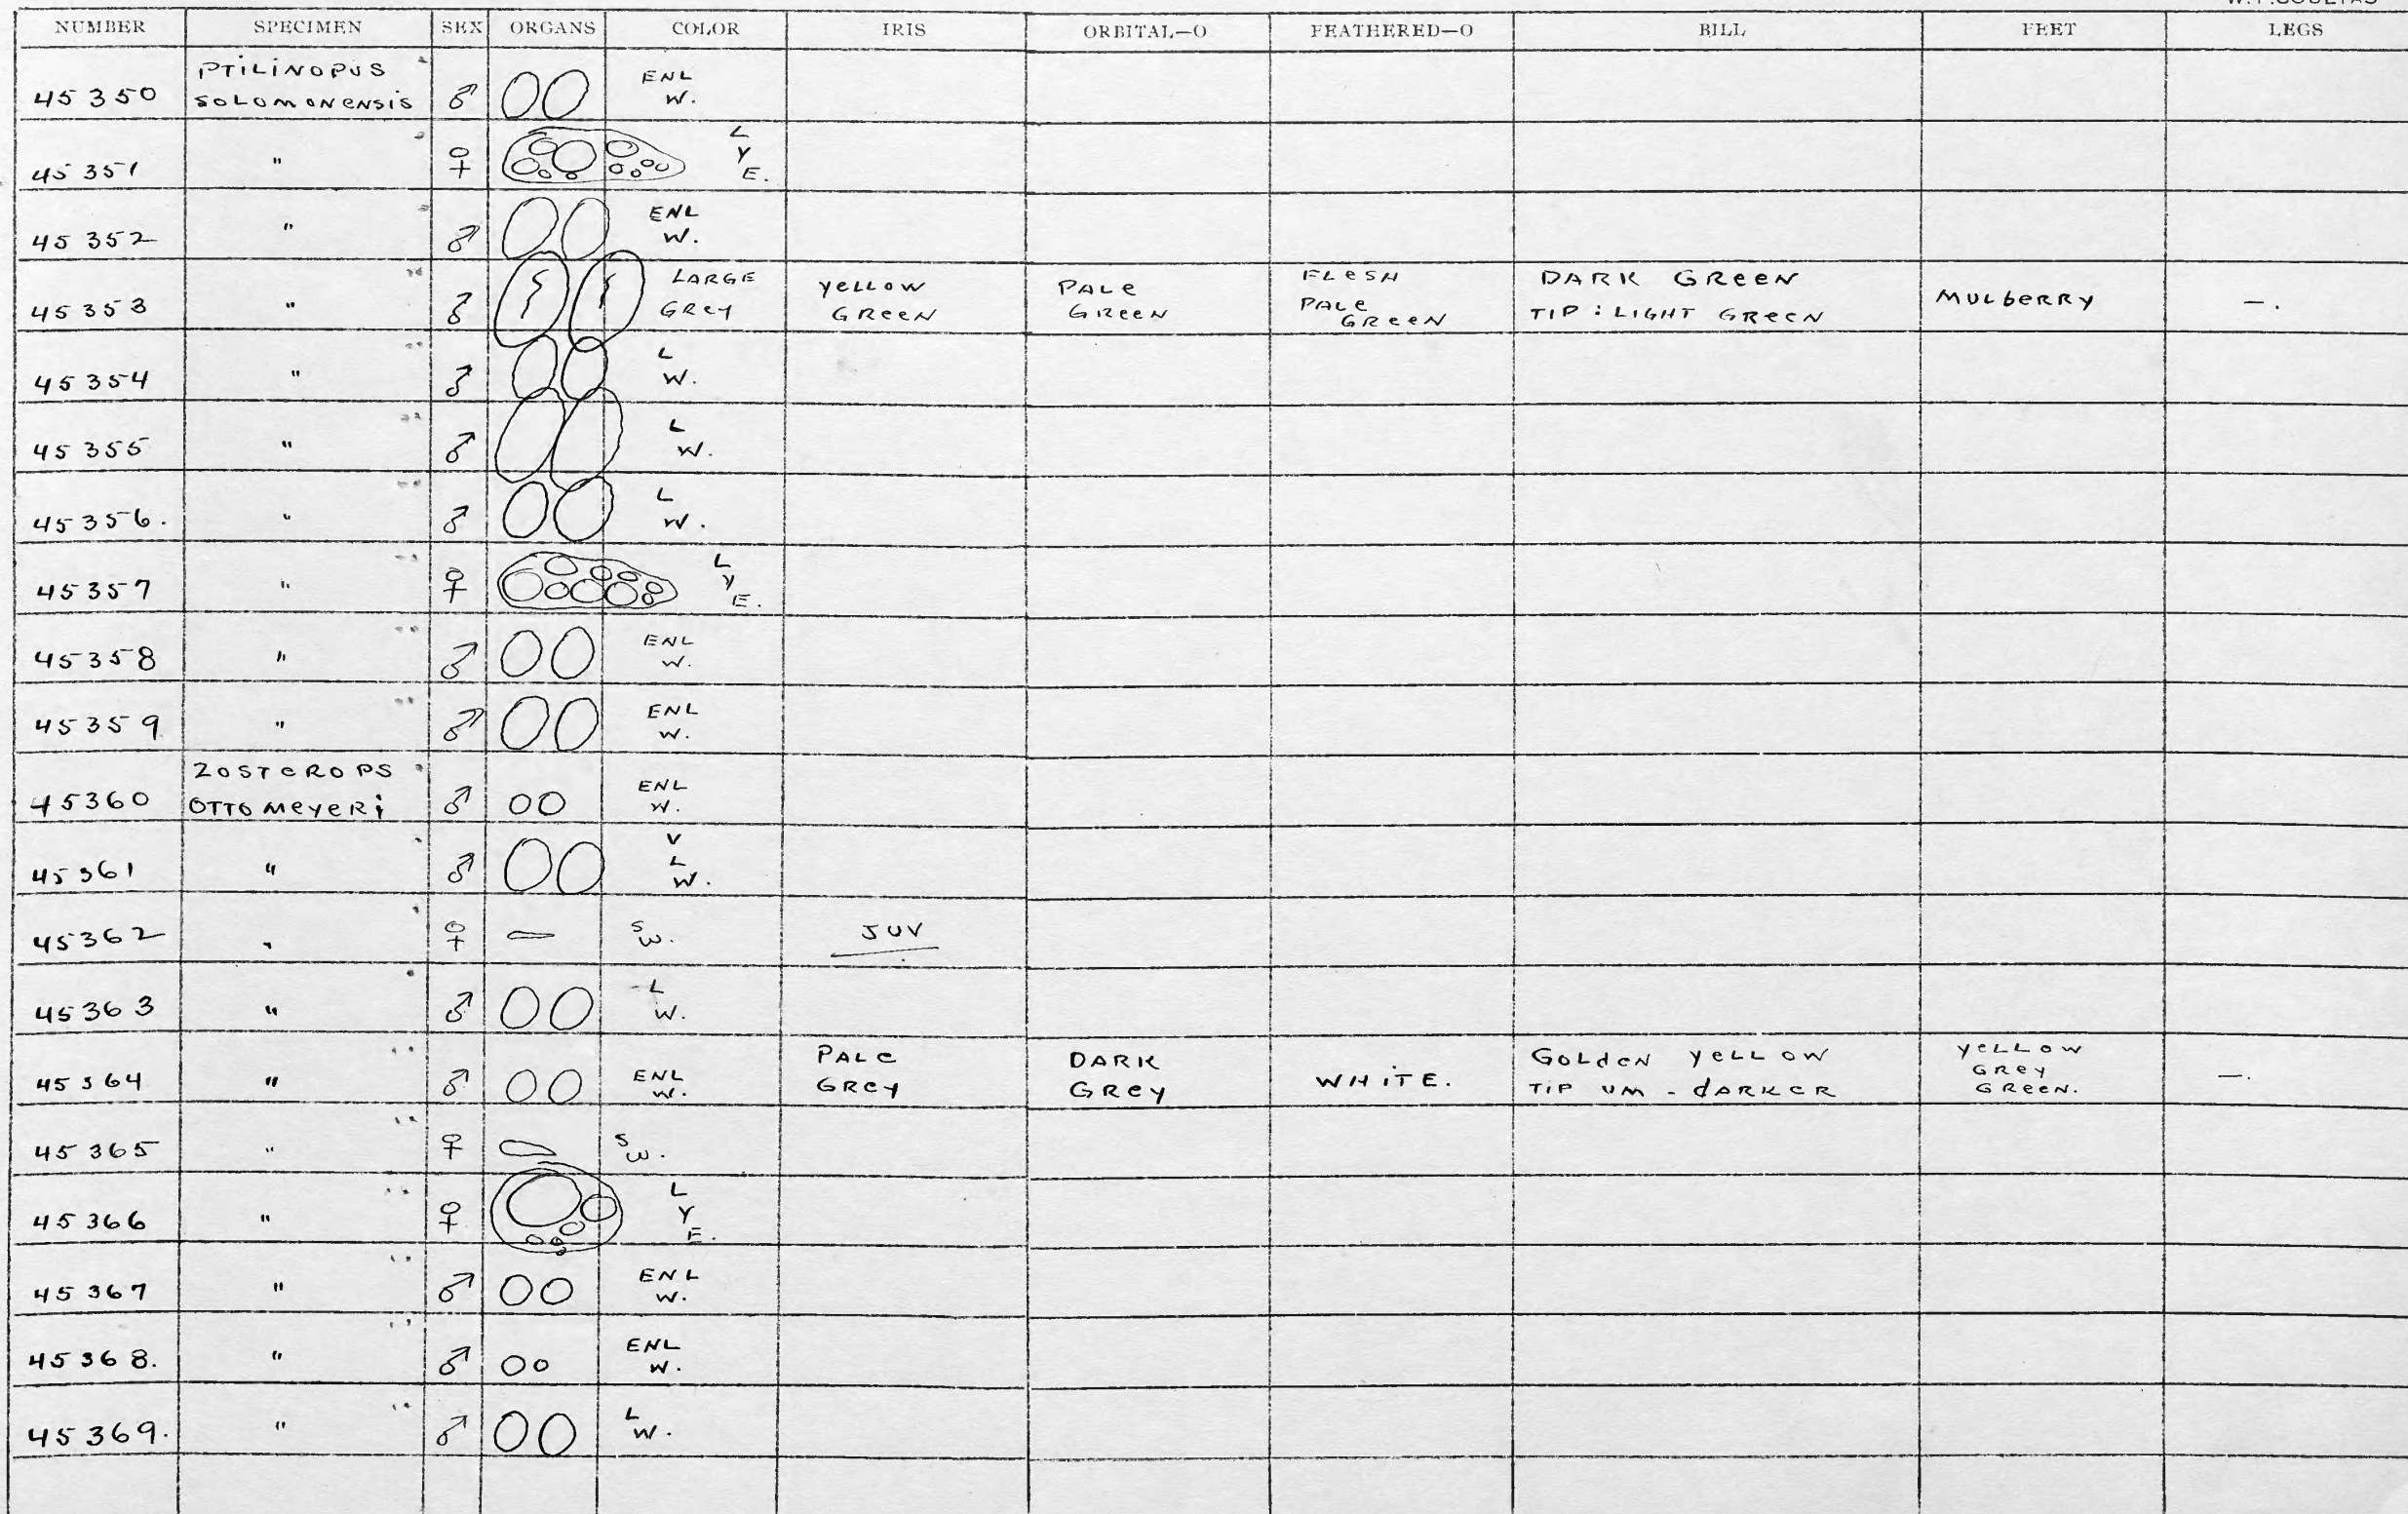 NUMBER SPECIMEN SEX ORGANS COLOR IRIS ORBITAL—O FEATHERED—O BILL FEET LEGS
45350 PTILINOPUS SOLOMONENSIS ♂ ENL W.
45351 " ♀ L Y E.
45352 " ♂ ENL W.
45353 " ♂ LARGE GREY YELLOW GREEN PALE GREEN FLESH PALE GREEN DARK GREEN TIP: LIGHT GREEN MULBERRY —.
45354 " ♂ L W.
45355 " ♂ L W.
45356. " ♂ L W.
45357 " ♀ L Y E.
45358 " ♂ ENL W.
45359 " ♂ ENL W.
45360 ZOSTEROPS OTTOMEYERI ♂ ENL W.
45361 " ♂ V L W.
45362 " ♀ S W. JUV
45363 " ♂ L W.
45364 " ♂ ENL W. PALE GREY DARK GREY WHITE. GOLDEN YELLOW TIP UM - DARKER YELLOW GREY GREEN. —.
45365 " ♀ S W.
45366 " ♀ L Y E.
45367 " ♂ ENL W.
45368. " ♂ ENL W.
45369. " ♂ L W.